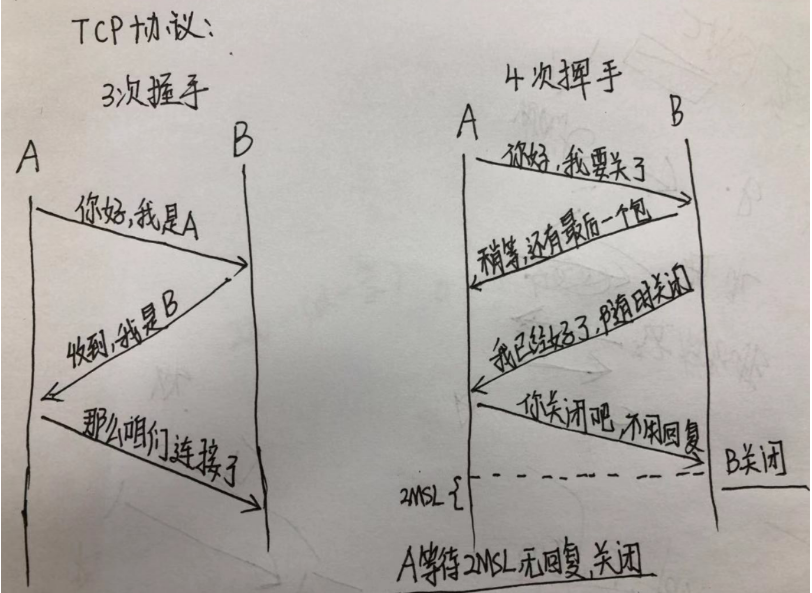 TCP协议:
3次握手
A
B
你好,我是A
收到,我是B
那么咱们连接了
4次挥手
A
B
你好,我要关了
稍等,还有最后一个包
我已经好了,随时关闭
你关闭吧,不用回复
B关闭
2MSL{
A等待2MSL,无回复,关闭